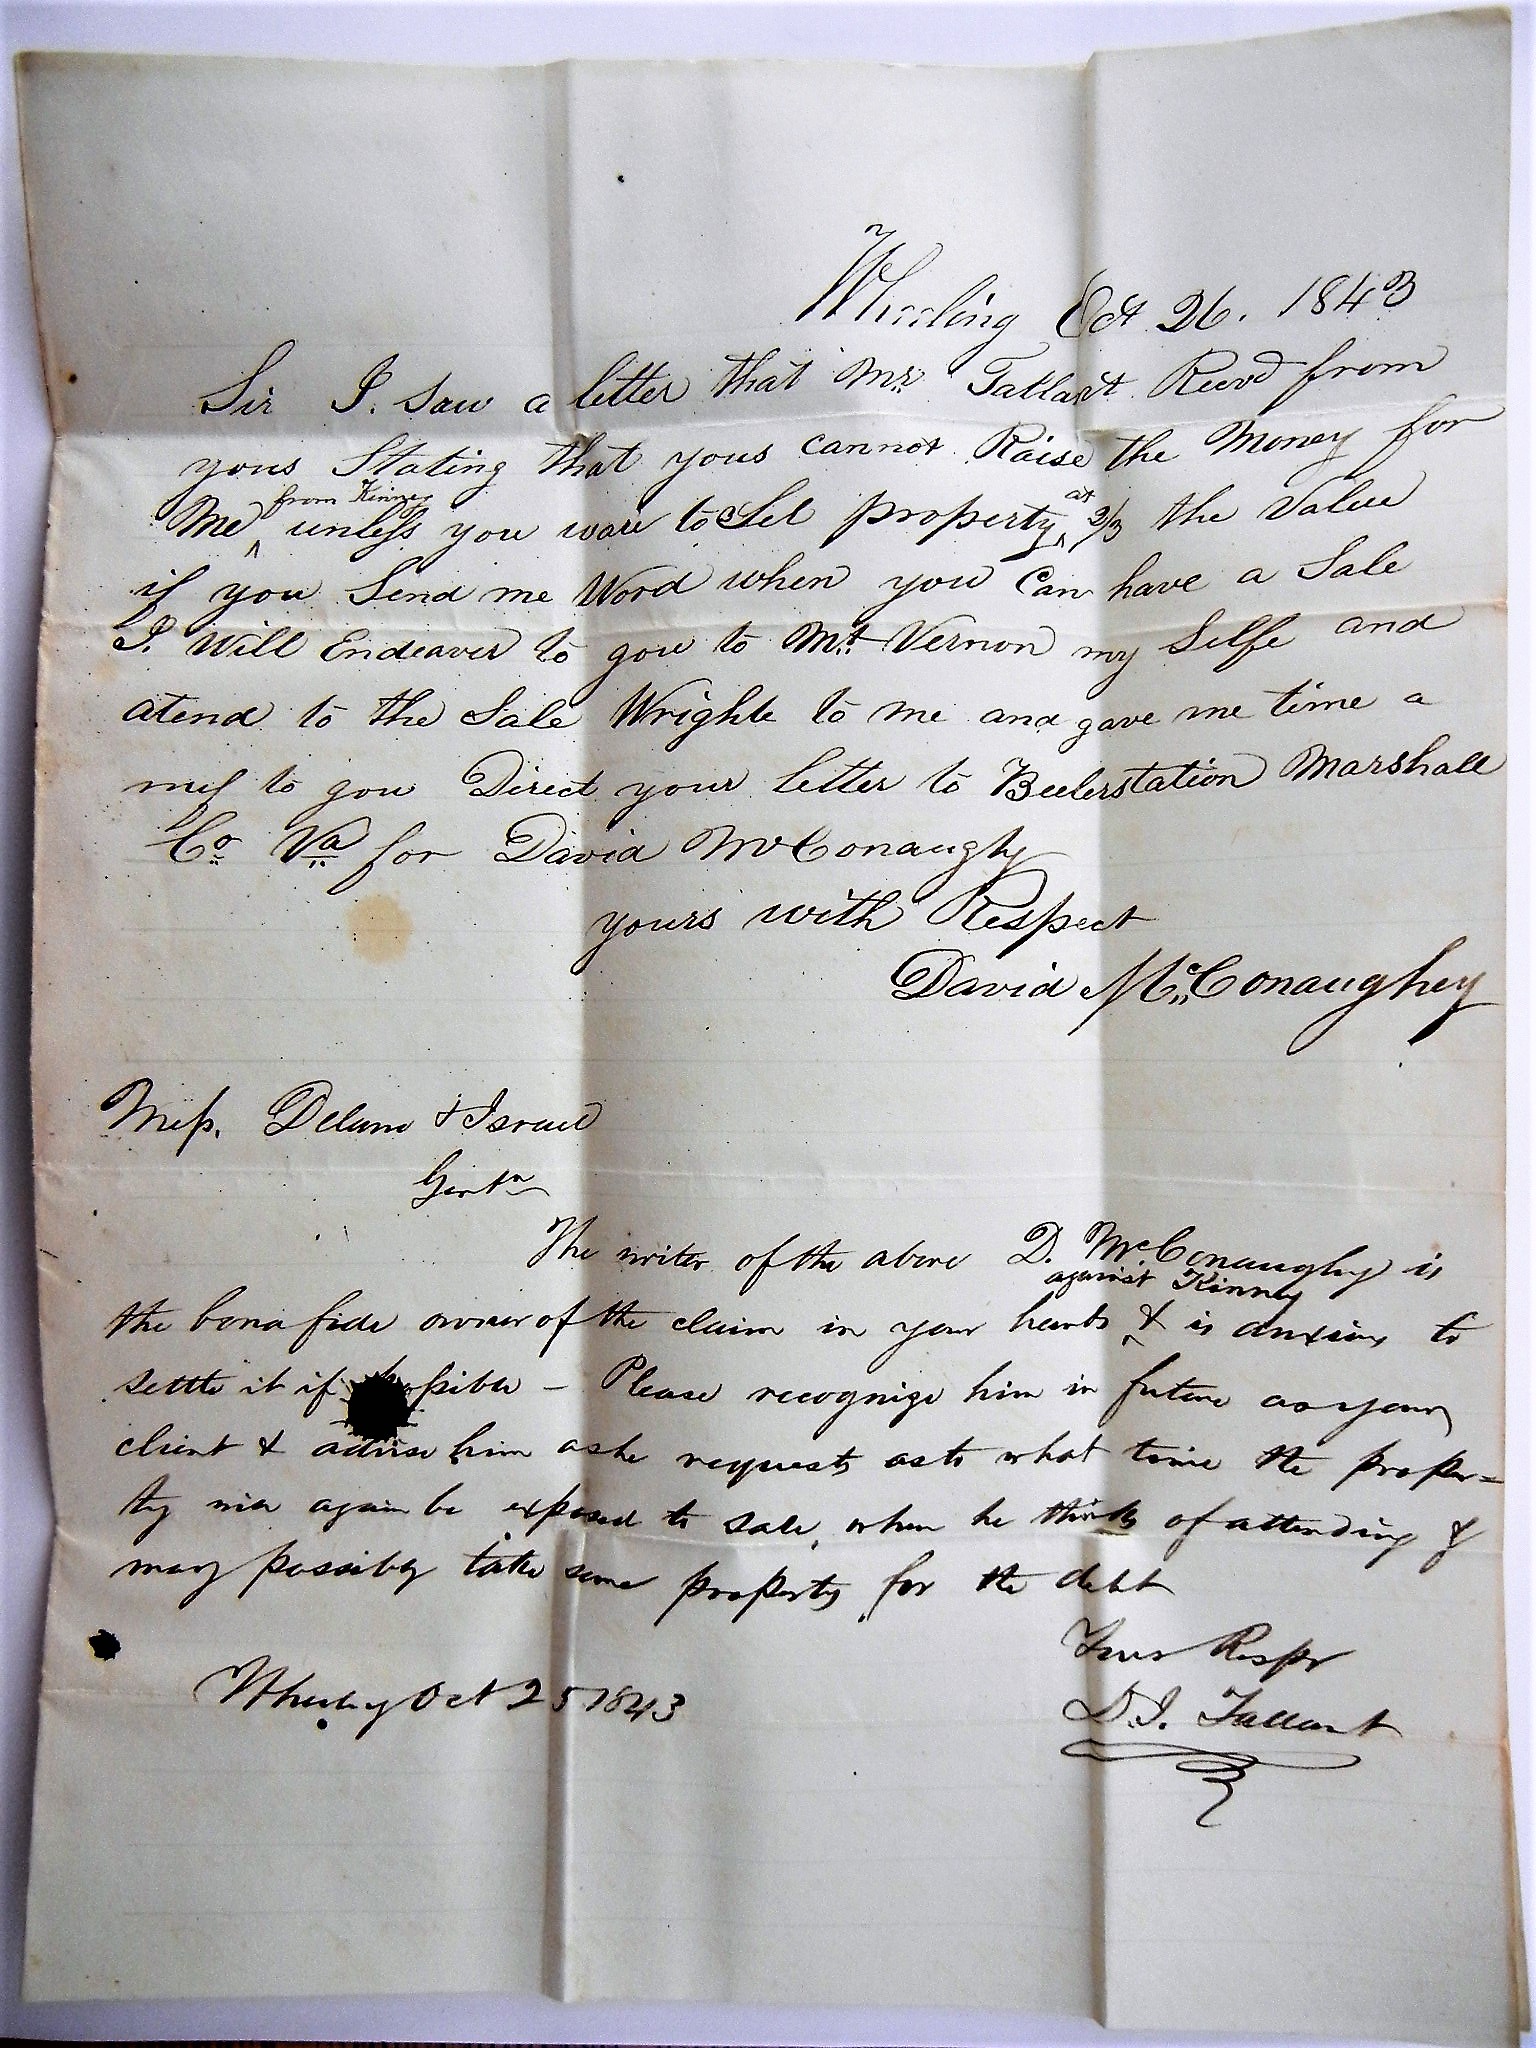 Wheeling Oct 26. 1843
Sir I. Saw a letter that Mr. Tallant Recvd from
yous Stating that yous cannot Raise the Money for
Me from Kinney unless you ware to Sel property at 2/3 the Value
if you Send me Word when you Can have a Sale
I. Will Endeaver to gow to Mt. Vernon my Selfe and
atend to the Sale Wrighte to me and gave me time a
nuf to gow Direct your letter to Beelerstation Marshall
Co Va for David McConaughy
yours with Respect
David McConaughey
Mess. Delano & Israel
Gentn
The writer of the above D. McConaughy is
the bona fide owner of the claim in your hands against Kinney & is anxious to
settle it if possible – Please recognize him in future as your
client & advise him as he requests as to what time the proper=
ty will again be exposed to sale, when he thinks of attending &
may possibly take some property for the debt
Yours Respy
D. I. Tallant
Wheeling Oct 25 1843